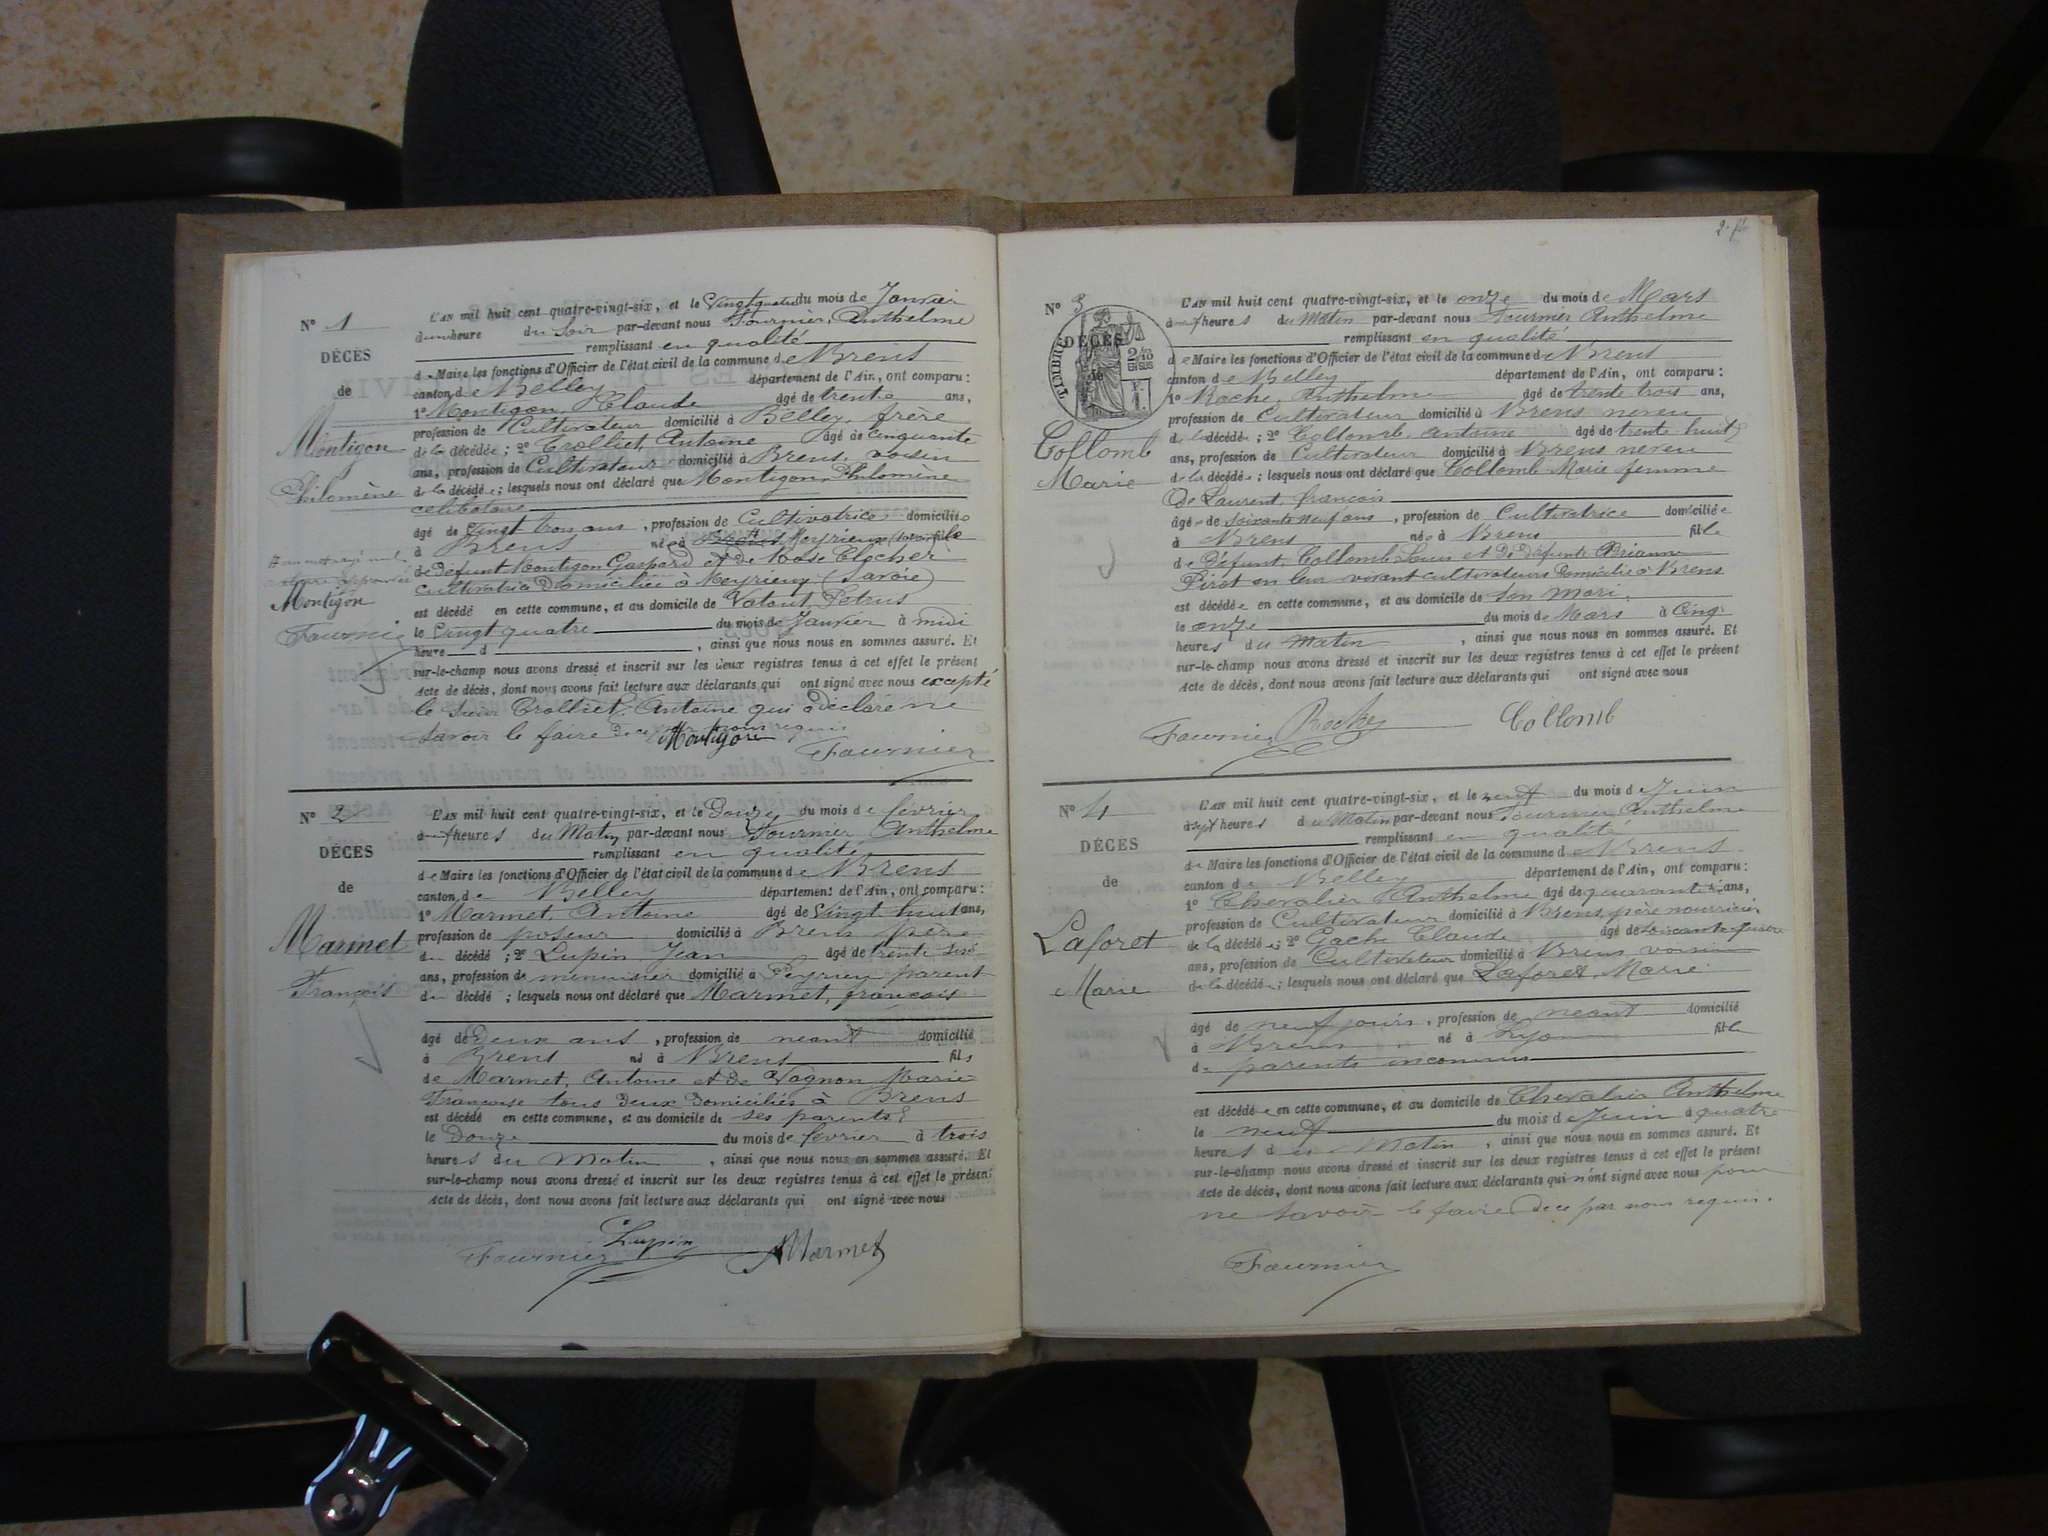 N° 1
DÉCÈS
de
Montigon
Philomène
Montigon
Fournier
L'AN mil huit cent quatre-vingt-six, et le vingt quatre du mois de Janvier
à une heure du Soir par-devant nous Fournier, Anthelme
remplissant en qualité
de Maire les fonctions d'Officier de l'état civil de la commune de Brens
canton de Belley département de l'Ain, ont comparu :
1° Montigon, Claude âgé de trente ans,
profession de Cultivateur domicilié à Belley, frère
de la décédée ; 2° Trolliet, Antoine âgé de cinquante
ans, profession de Cultivateur domicilié à Brens, voisin
de la décédée ; lesquels nous ont déclaré que Montigon, Philomène
célibataire
âgé de Vingt trois ans, profession de Cultivatrice domiciliée
à Brens née à Meyrieux fille
de défunt Montigon Gaspard et de Rose Clocher
cultivatrice Domiciliée à Meyrieux (Savoie)
est décédé en cette commune, et au domicile de Vatout, Petrus
le Vingt quatre du mois de Janvier à midi
heure d , ainsi que nous nous en sommes assuré. Et
sur-le-champ nous avons dressé et inscrit sur les deux registres tenus à cet effet le présent
Acte de décès, dont nous avons fait lecture aux déclarants qui ont signé avec nous excepté
le sieur Trolliet, Antoine qui a déclaré ne
savoir le faire de ce par nous requis
Montigon
Fournier
N° 2
DÉCÈS
de
Marmet
François
L'AN mil huit cent quatre-vingt-six, et le Douze du mois de février
à neuf heures du Matin par-devant nous Fournier Anthelme
remplissant en qualité
de Maire les fonctions d'Officier de l'état civil de la commune de Brens
canton de Belley département de l'Ain, ont comparu :
1° Marmet, Antoine âgé de Vingt huit ans,
profession de poseur domicilié à Brens père
du décédé ; 2° Lupin Jean âgé de trente six
ans, profession de menuisier domicilié à Peyrieu parent
du décédé ; lesquels nous ont déclaré que Marmet, françois
âgé de Deux ans, profession de neant domicilié
à Brens né à Brens fils
de Marmet, Antoine et de Vagnon Marie
Françoise tous deux domiciliés à Brens
est décédé en cette commune, et au domicile de ses parents
le Douze du mois de février à trois
heures du Matin, ainsi que nous nous en sommes assuré. Et
sur-le-champ nous avons dressé et inscrit sur les deux registres tenus à cet effet le présent
Acte de décès, dont nous avons fait lecture aux déclarants qui ont signé avec nous
Fournier Lupin Marmet
N° 3
TIMBRE
2/10 EN SUS
DÉCÈS
de
Collomb
Marie
L'AN mil huit cent quatre-vingt-six, et le onze du mois de Mars
à neuf heures du Matin par-devant nous Fournier Anthelme
remplissant en qualité
de Maire les fonctions d'Officier de l'état civil de la commune de Brens
canton de Belley département de l'Ain, ont comparu :
1° Roche, Anthelme âgé de trente trois ans,
profession de Cultivateur domicilié à Brens neveu
de la décédée ; 2° Collomb, Antoine âgé de trente huit
ans, profession de Cultivateur domicilié à Brens neveu
de la décédée ; lesquels nous ont déclaré que Collomb Marie femme
De Laurent, françois
âgée de soixante neuf ans, profession de Cultivatrice domiciliée
à Brens née à Brens fille
de Défunt, Collomb Louis et de défunte Brianne
Pirot en leur vivant cultivateurs Domicilié à Brens
est décédée en cette commune, et au domicile de son mari
le onze du mois de Mars à cinq
heures du Matin, ainsi que nous nous en sommes assuré. Et
sur-le-champ nous avons dressé et inscrit sur les deux registres tenus à cet effet le présent
Acte de décès, dont nous avons fait lecture aux déclarants qui ont signé avec nous
Fournier Roche Collomb
N° 4
DÉCÈS
de
Laforet
Marie
L'AN mil huit cent quatre-vingt-six, et le neuf du mois de Juin
à sept heures du Matin par-devant nous Fournier Anthelme
remplissant en qualité
de Maire les fonctions d'Officier de l'état civil de la commune de Brens
canton de Belley département de l'Ain, ont comparu :
1° Chevalier Anthelme âgé de quarante ans,
profession de Cultivateur domicilié à Brens, père nourricier
de la décédée ; 2° Gache Claude âgé de soixante quatre
ans, profession de Cultivateur domicilié à Brens voisin
de la décédée ; lesquels nous ont déclaré que Laforet, Marie
âgé de neuf jours, profession de neant domicilié
à Brens né à Lyon fille
de parents inconnus
est décédée en cette commune, et au domicile de Chevalier Anthelme
le neuf du mois de Juin à quatre
heures du Matin, ainsi que nous nous en sommes assuré. Et
sur-le-champ nous avons dressé et inscrit sur les deux registres tenus à cet effet le présent
Acte de décès, dont nous avons fait lecture aux déclarants qui n'ont signé avec nous pour
ne savoir le faire de ce par nous requis.
Fournier